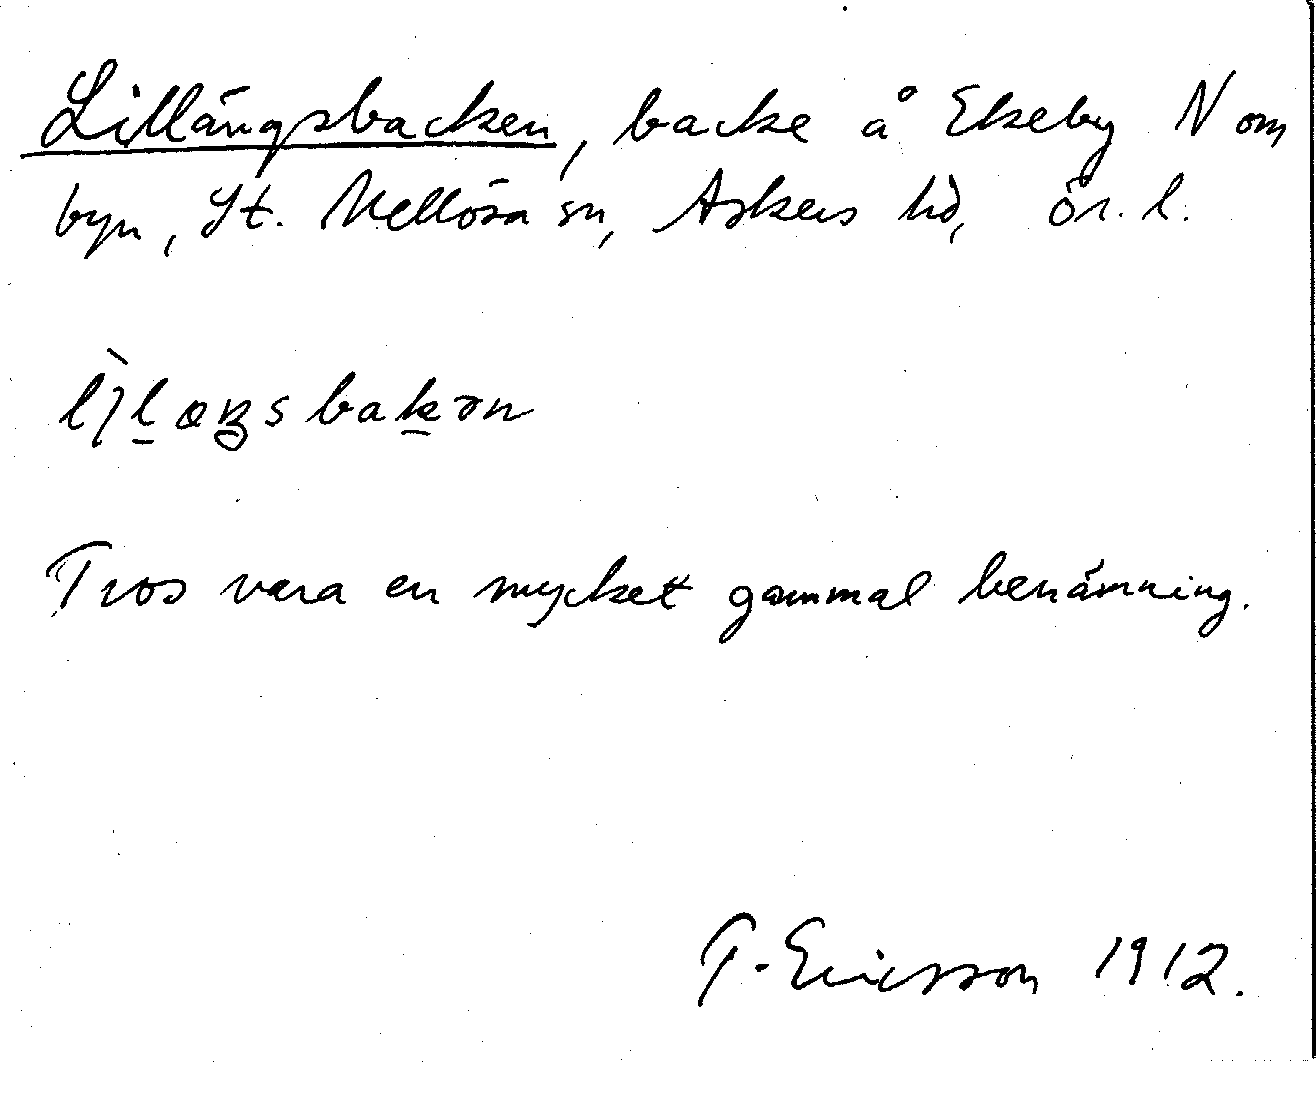 Lillängsbacken, backe å Ekeby N om
byn, St. Mellösa sn, Askers hd, Ör. l.
Tros vara en mycket gammal benämning.
T. Ericsson 1912.